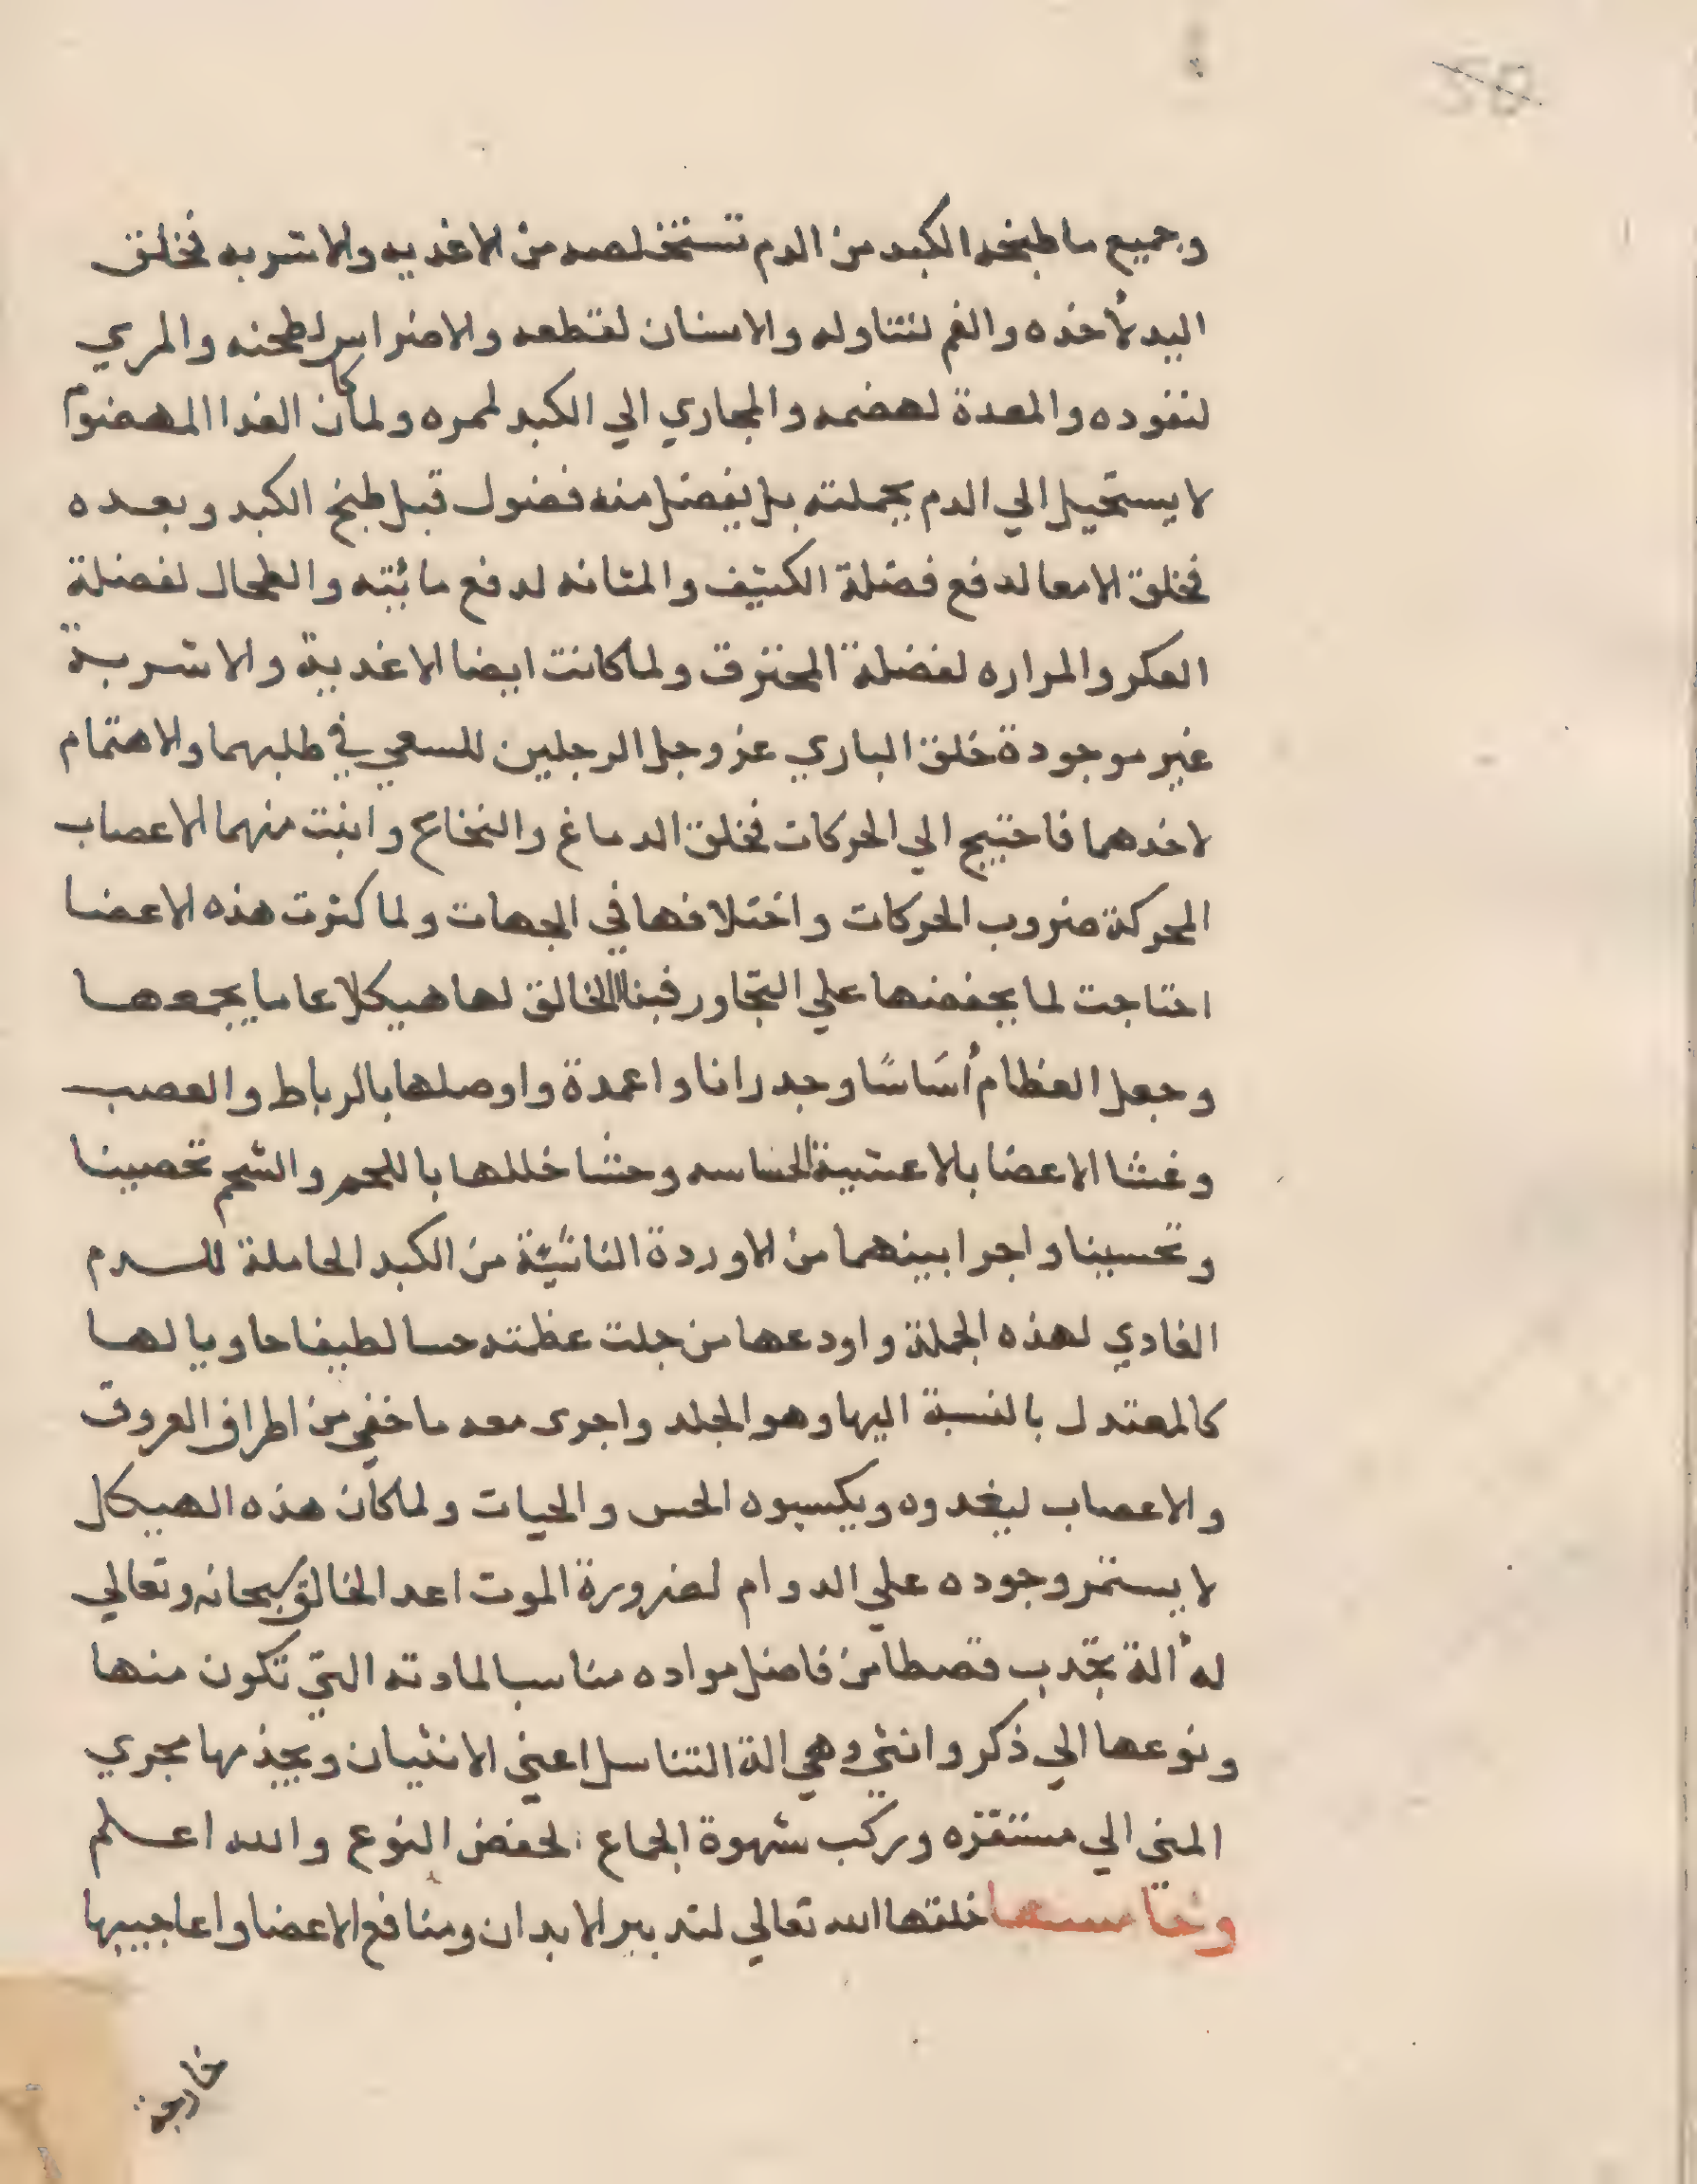 وجميع ما طبخه الكبد من الدم تستخلصه من الاغديه والاشربه فخلق
اليد لأخذه والفم لتناوله والاسنان لقطعه والاضراس لطحنه والمري
لنفوده والمعدة لهضمه والمجاري الي الكبد لممره ولما كان الغدا المهضوم
لا يستحيل الي الدم بجملته بل يفضل منه فضول قبل طبخ الكبد وبعده
فخلق الامعا لدفع فضلة الكثيف والمثانه لدفع مائيته والطحال لفضلة
العكر والمراره لفضلة المحترق ولما كانت ايضا الاغدية والاشربة
غير موجودة خلق الباري عز وجل الرجلين للسعي في طلبهما والاهتمام
لاخدهما فاحتيج الي الحركات فخلق الدماغ والنخاع وانبت منهما الاعصاب
المحركة ضروب الحركات واختلافها في الجهات ولما كثرت هذه الاعضا
احتاجت لما يحفضها علي التجاور فبنا الخالق لها هيكلا عاما يجمعها
وجعل العظام أسَاسًا وجدرانا واعمدة واوصلها بالرباط والعصب
وغشا الاعضا بالاغشية الحساسه وحشا خللها باللحم والشحم تحصينا
وتحسينا واجرا بينهما من الاوردة الناشئة من الكبد الحاملة للدم
الغادي لهذه الجملة واودعها من جلت عظمته حسا لطيفا حاويا لها
كالمعتدل بالنسبة اليها وهو الجلد واجرى معه ما خفي من اطراف العروق
والاعصاب ليغدوه ويكسبوه الحس والحيات ولما كان هذه الهيكل
لا يستمر وجوده علي الدوام لضرورة الموت اعد الخالق سبحانه وتعالي
له ألة تجدب قصطا من فاضل مواده مناسبا لمادته التي تكون منها
ونوعها الي ذكر وانثي وهي الة التناسل اعني الانثيان ويجذمها مجري
المنى الي مستقره وركب شهوة الجماع لحفض النوع والله اعلم
وخامسها خلقها الله تعالي لتدبير الابدان ومنافع الاعضا واعاجيبها
خارجة